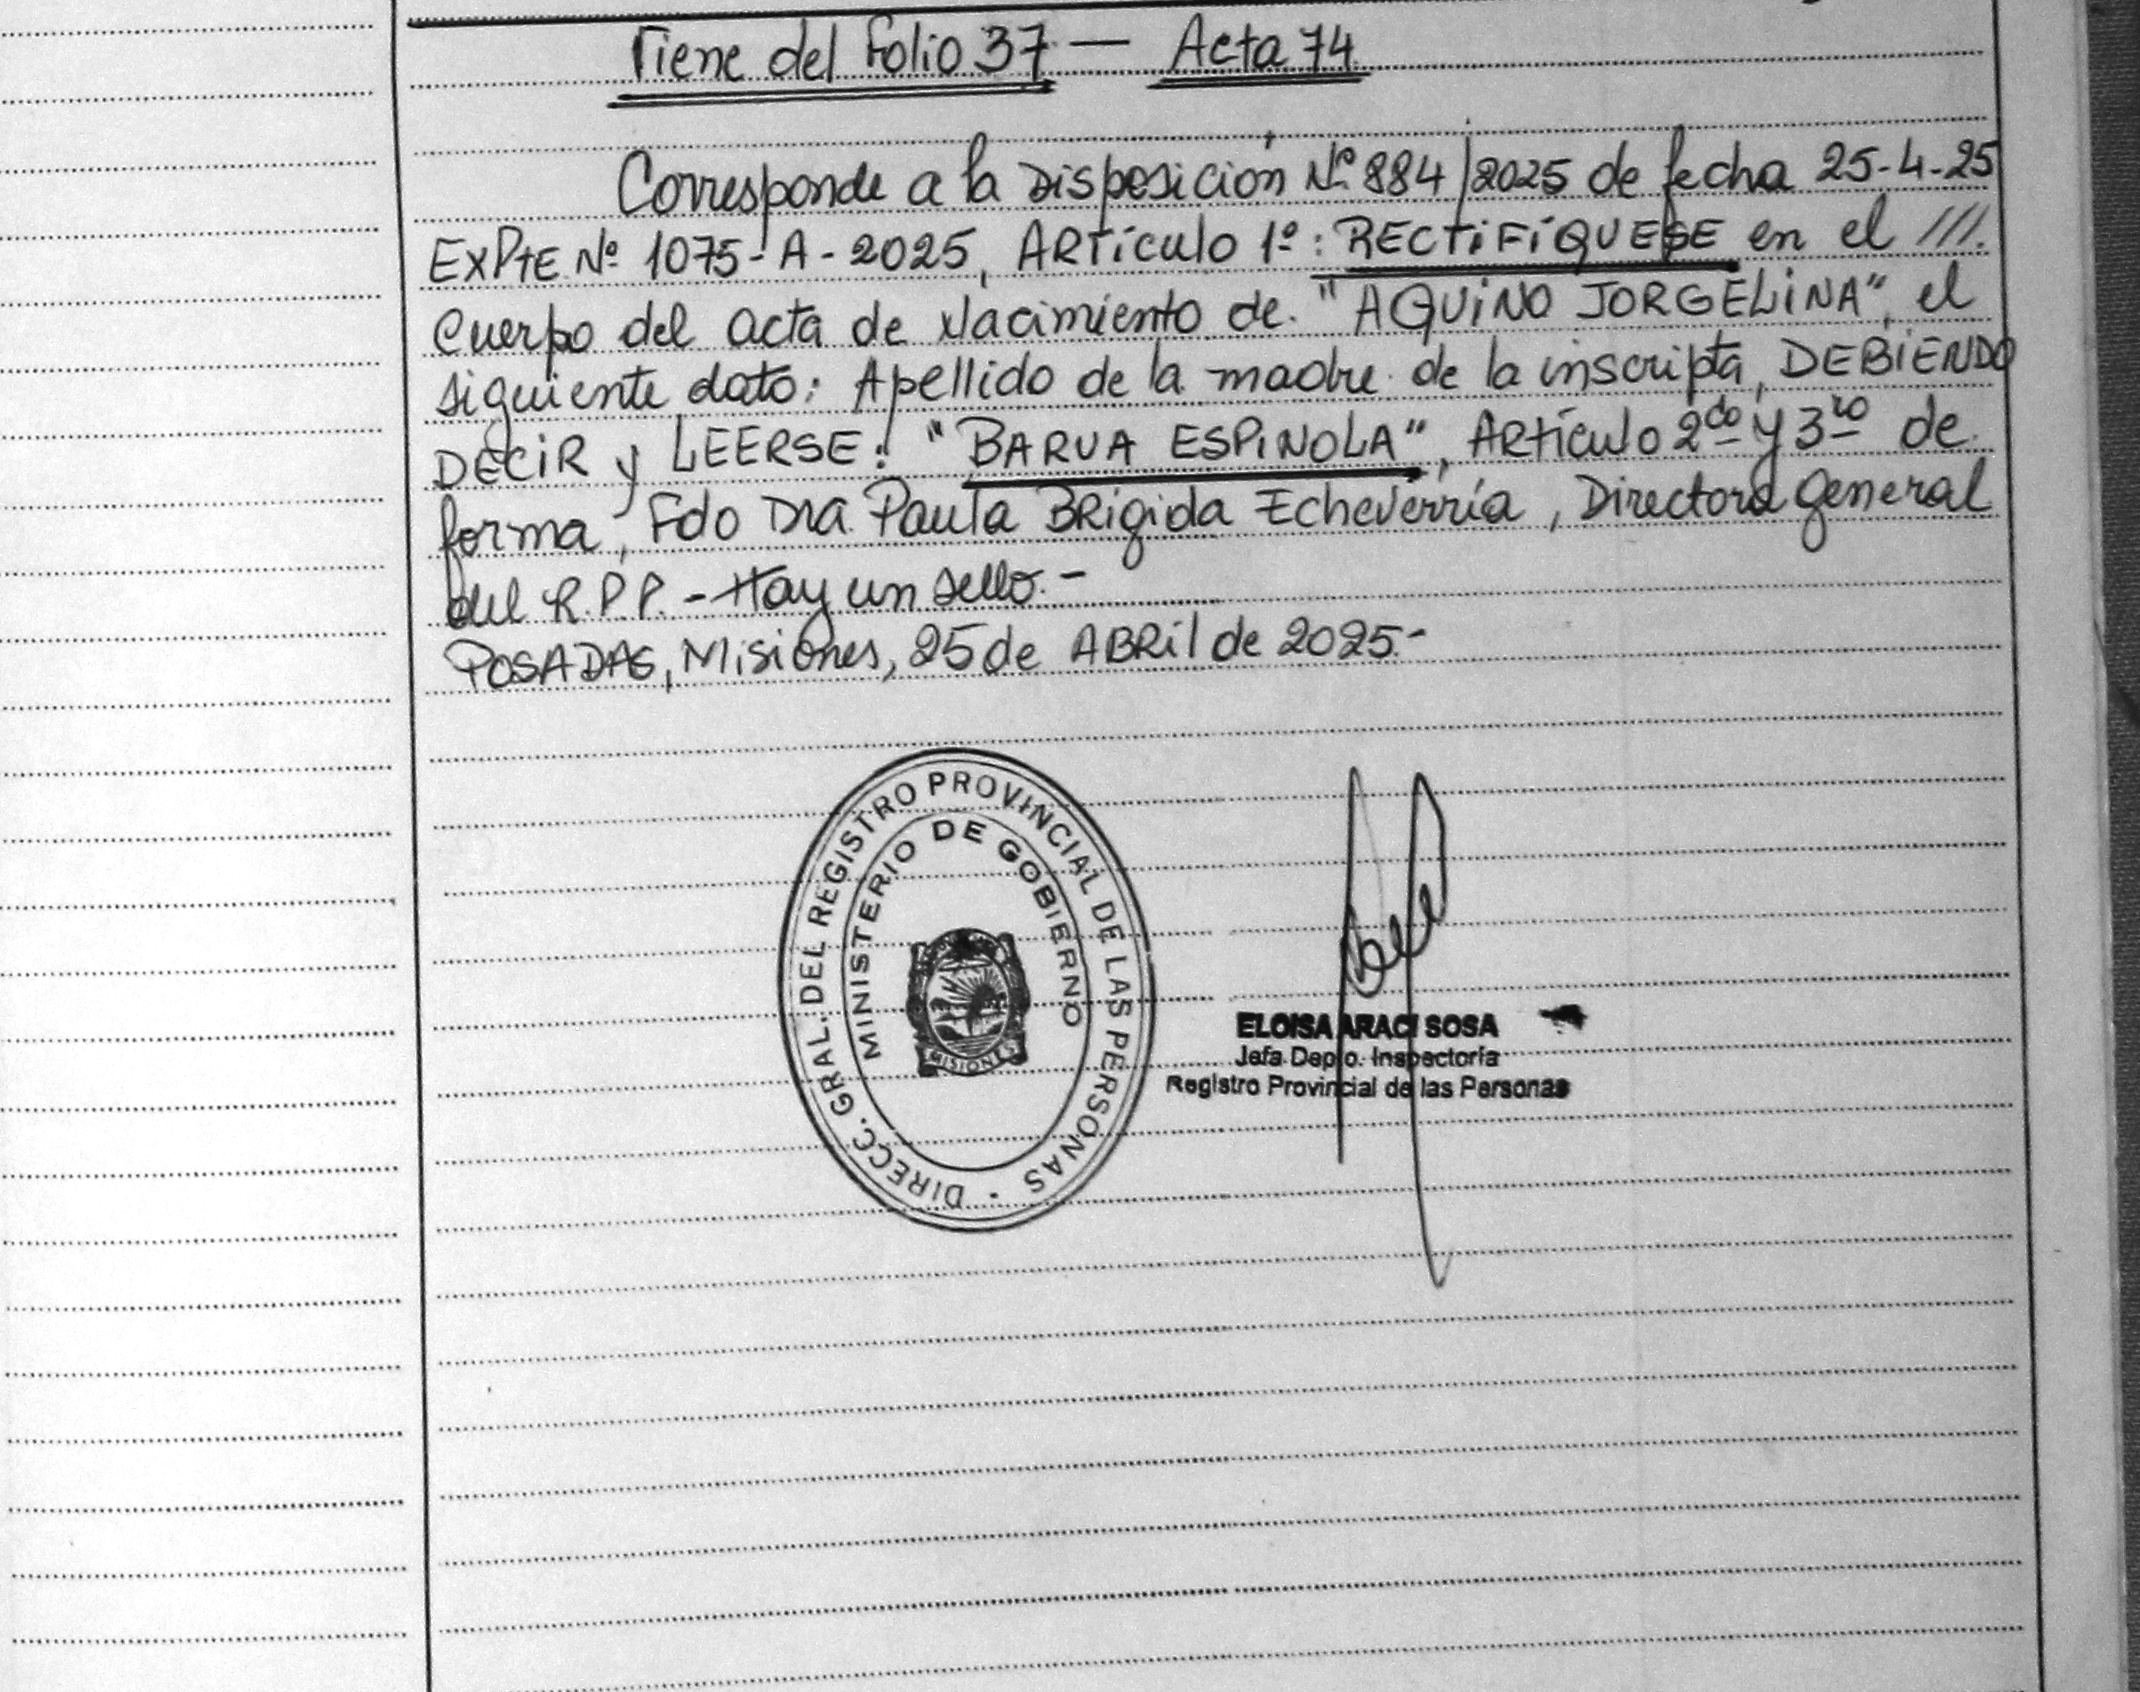 Viene del Folio 37 — Acta 74
Corresponde a la Disposición Nº 884/2025 de fecha 25-4-25
EXPTE Nº 1075-A-2025, ARTÍCULO 1º: RECTIFÍQUESE en el ///.
Cuerpo del acta de Nacimiento de. "AQUINO JORGELINA", el
siguiente dato: Apellido de la madre de la inscripta, DEBIENDO
DECIR y LEERSE: "BARUA ESPINOLA", Artículo 2do y 3ro de
forma, Fdo Dra Paula Brigida Echeverría, Directora General
del R.P.P. - Hay un sello.-
POSADAS, Misiones, 25 de ABRil de 2025.-
DIRECC. GRAL. DEL REGISTRO PROVINCIAL DE LAS PERSONAS
MINISTERIO DE GOBIERNO
MISIONES
ELOISA ARACI SOSA
Jefa Depto. Inspectoría
Registro Provincial de las Personas